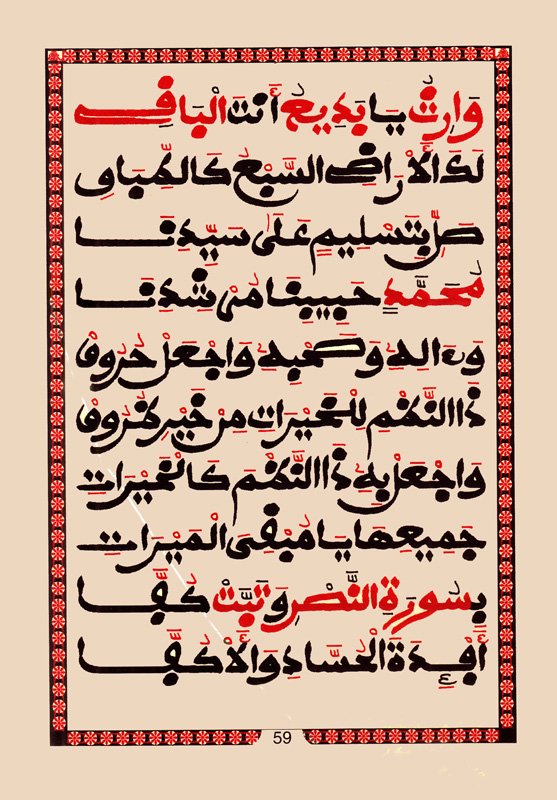 وَارِثُ يَا بَدِيعُ أَنْتَ الْبَاقِي
لَكَ الْأَرَاضِي السَّبْعُ كَالطِّبَاقِ
صَلِّ بِتَسْلِيمٍ عَلَى سَيِّدِنَا
مُحَمَّدٍ حَبِيبِنَا مُرْشِدِنَا
وَءَالِهِ وَصَحْبِهِ وَاجْعَلْ حُرُوفْ
ذَا النَّظْمِ لِلْخَيْرَاتِ مِنْ خَيْرِ ظُرُوفْ
وَاجْعَلْ بِهِ ذَا النَّظْمَ كَالْخَيْرَاتِ
جَمِيعِهَا يَا مُبْقِيَ الْمَيْرَاتِ
بِسُورَةِ النَّصْرِ وَتَبَّتْ كُفَّا
أَفْئِدَةَ الْحُسَّادِ وَالْأَكُفَّا
59